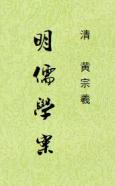 清 黄宗羲
明儒學案